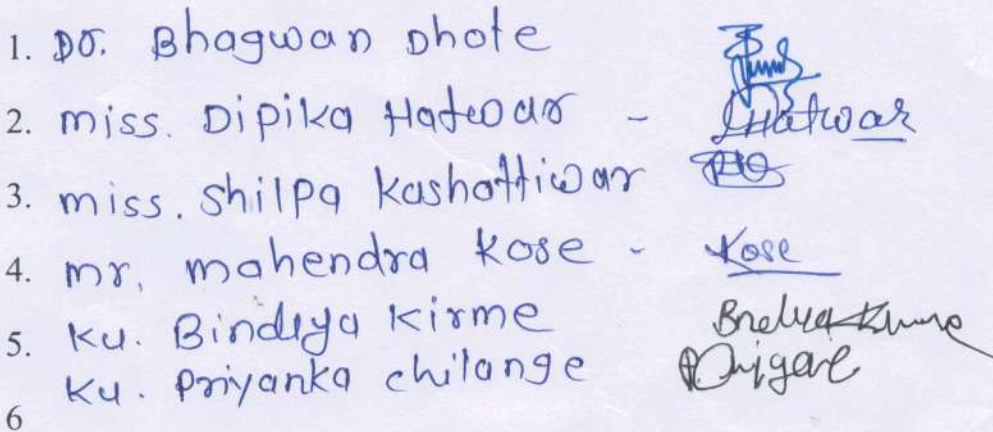 1. Dr. Bhagwan Dhote
2. miss. Dipika Hatwar - Hatwar
3. miss. Shilpa Kashattiwar
4. mr. mahendra Kose - Kose
5. Ku. Bindiya Kirme
Ku. Priyanka chilange
6